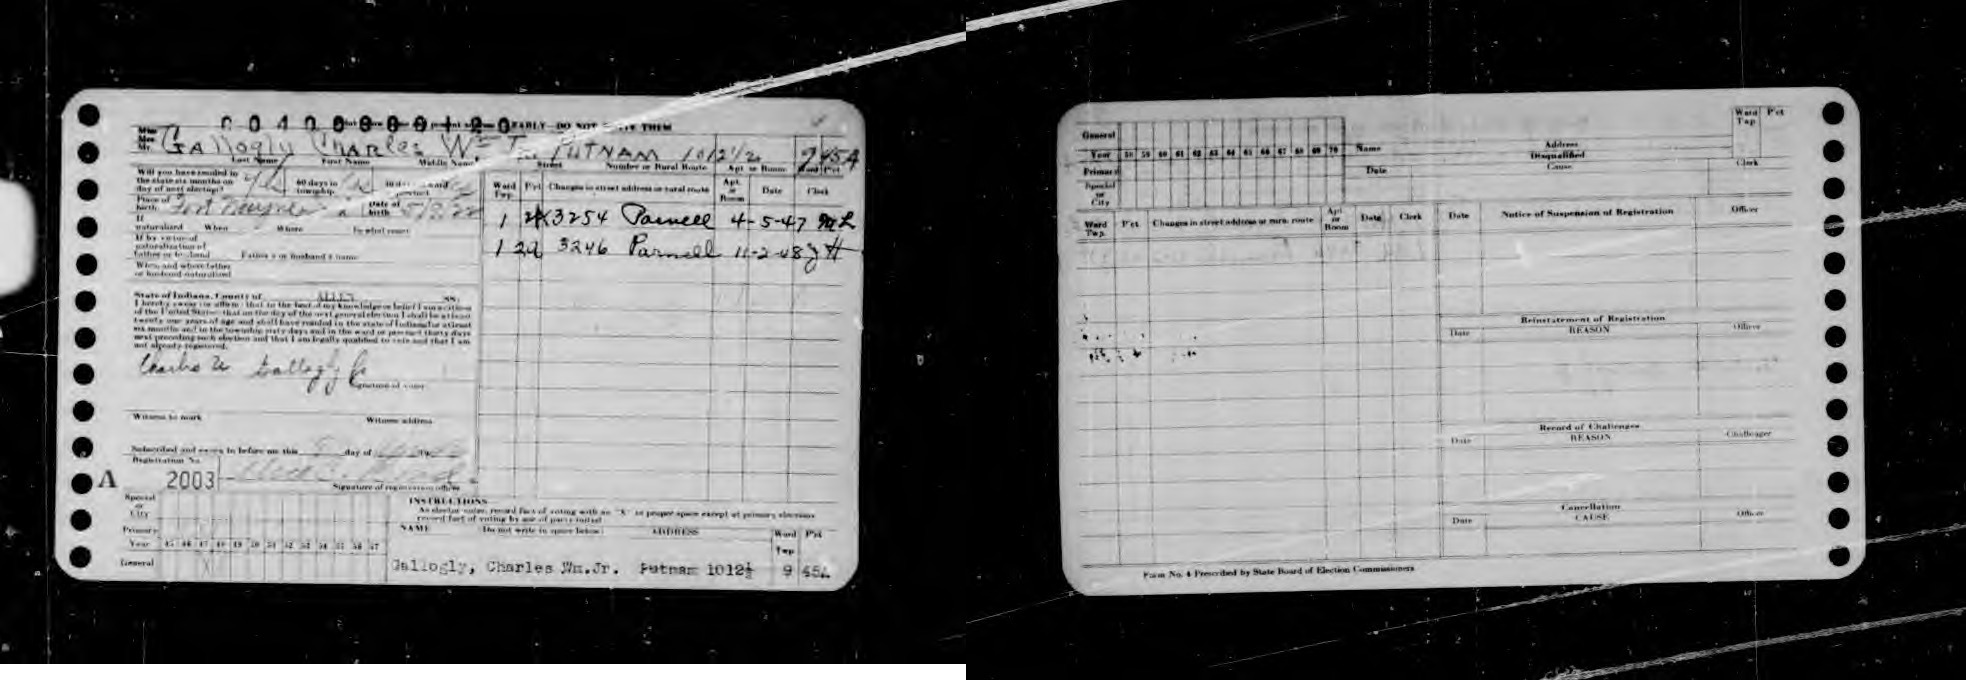 EARLY—DO NOT
Mr. GALLOGLY CHARLES PUTNAM 1012½ 9 45A
Last Name First Name Middle Name Street Number or Rural Route Apt or Room Ward Pct
Will you have resided in the state six months on day of next election? 60 days in township
Place of birth Fort Wayne Date of birth
If naturalized When Where In what court
If by virtue of naturalization of father or husband Father's or husband's name
When and where father or husband naturalized
Ward Twp. P'ct Changes in street address or rural route Apt. or Room Date Clerk
1 3254 Parnell 4-5-47
1 3246 Parnell 11-2-48
State of Indiana, County of SS:
I hereby swear (or affirm) that to the best of my knowledge or belief I am a citizen
of the United States; that on the day of the next general election I shall be at least
twenty one years of age and shall have resided in the state of Indiana for at least
six months and in the township sixty days and in the ward or precinct thirty days
next preceding such election and that I am legally qualified to vote and that I am
not already registered.
Charles W Gallogly Jr
Signature of voter
Witness to mark Witness address
Subscribed and sworn to before me this day of
Registration No.
A 2003
Signature of registration officer
INSTRUCTIONS
As elector votes, record fact of voting with an "X" in proper space except at primary elections
record fact of voting by use of party initial
Special or City
Primary
Year 45 46 47 48 49 50 51 52 53 54 55 56 57
General
NAME Do not write in space below ADDRESS Ward Twp P'ct
Gallogly, Charles Wm.Jr. Putnam 1012½ 9 45A
General
Year 58 59 60 61 62 63 64 65 66 67 68 69 70
Primary
Special or City
Name Address Ward Twp P'ct
Disqualified
Date Cause Clerk
Ward Twp. P'ct Changes in street address or rural route Apt or Room Date Clerk
Date Notice of Suspension of Registration Officer
Reinstatement of Registration
Date REASON Officer
Record of Challenges
Date REASON Challenger
Cancellation
Date CAUSE Officer
Form No. 4 Prescribed by State Board of Election Commissioners